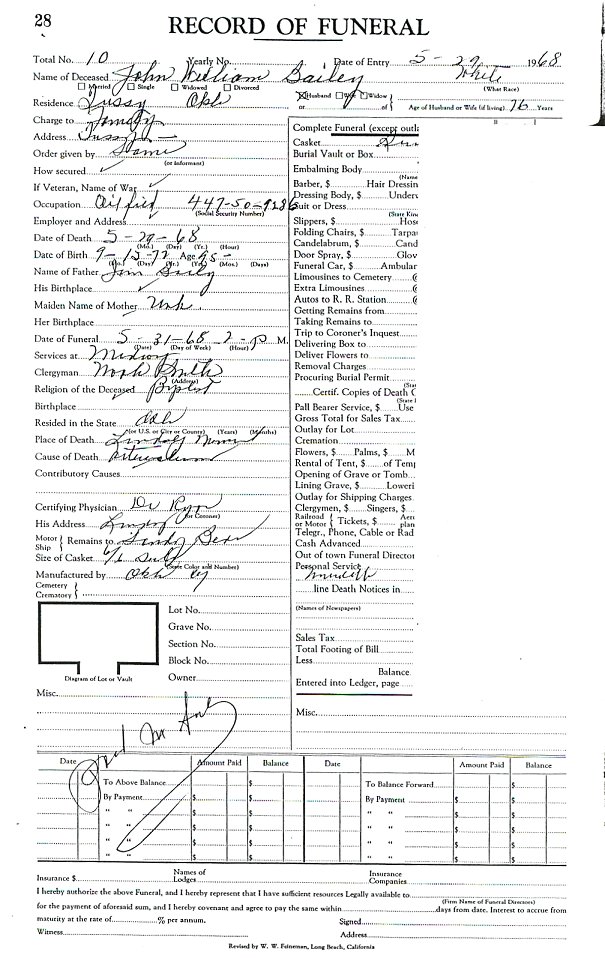 28
RECORD OF FUNERAL
Total No. 10 Yearly No. Date of Entry 5-29- 1968
Name of Deceased John William Bailey White
Married Single Widowed Divorced (What Race)
Residence Tussy Okl Husband Wife Widow
or of Age of Husband or Wife (if living) 76 Years
Charge to Family
Address Tussy
Order given by Same
(or Informant)
How secured
If Veteran, Name of War
Occupation Oil field 447-50-9286
(Social Security Number)
Employer and Address
Date of Death 5-29-68
(Mo.) (Day) (Yr.) (Hour)
Date of Birth 9-15-72 Age 95
(Mo.) (Day) (Yr.) (Mos.) (Days)
Name of Father Jim Baily
His Birthplace
Maiden Name of Mother Unk
Her Birthplace
Date of Funeral 5-31-68 2-P M.
(Date) (Day of Week) (Hour)
Services at Midway
Clergyman Noah Smith
(Address)
Religion of the Deceased Baptist
Birthplace
Resided in the State Okl
(or U.S. or City or County) (Years) (Months)
Place of Death Lindsay
Cause of Death
Contributory Causes
Certifying Physician Dr Ryan
(or Coroner)
His Address Lindsay
Motor Ship Remains to Sandy Bear
Size of Casket 6/6
(State Color and Number)
Manufactured by Okl
Cemetery
Crematory
Lot No.
Grave No.
Section No.
Block No.
Owner
Diagram of Lot or Vault
Misc.
Complete Funeral (except outla
Casket
Burial Vault or Box
Embalming Body
(Name
Barber, $ Hair Dressin
Dressing Body, $ Underv
Suit or Dress
(State Kind
Slippers, $ Hose
Folding Chairs, $ Tarpa
Candelabrum, $ Cand
Door Spray, $ Glov
Funeral Car, $ Ambular
Limousines to Cemetery @
Extra Limousines @
Autos to R. R. Station @
Getting Remains from
Taking Remains to
Trip to Coroner's Inquest
Delivering Box to
Deliver Flowers to
Removal Charges
Procuring Burial Permit
(Sta
Certif. Copies of Death C
(State I
Pall Bearer Service, $ Use
Gross Total for Sales Tax
Outlay for Lot
Cremation
Flowers, $ Palms, $ M
Rental of Tent, $ of Temp
Opening of Grave or Tomb
Lining Grave, $ Loweri
Outlay for Shipping Charges
Clergymen, $ Singers, $
Railroad or Motor Tickets, $ Aero plan
Telegr., Phone, Cable or Rad
Cash Advanced
Out of town Funeral Director
Personal Service
line Death Notices in
(Names of Newspapers)
Sales Tax
Total Footing of Bill
Less
Balance
Entered into Ledger, page
Misc.
Date Amount Paid Balance Date Amount Paid Balance
To Above Balance $ To Balance Forward $
By Payment $ By Payment $
" " $ " " $
" " $ " " $
" " $ " " $
" " $ " " $
Insurance $ Names of Lodges Insurance Companies
I hereby authorize the above Funeral, and I hereby represent that I have sufficient resources Legally available to
(Firm Name of Funeral Directors)
for the payment of aforesaid sum, and I hereby covenant and agree to pay the same within days from date. Interest to accrue from
maturity at the rate of % per annum. Signed
Witness Address
Revised by W. W. Feineman, Long Beach, California